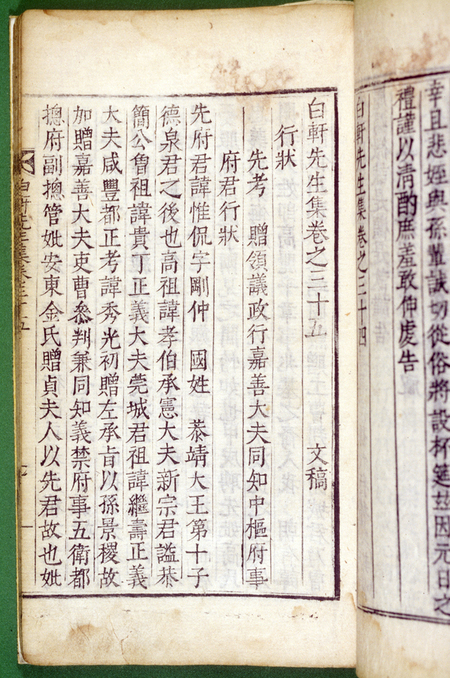 幸且悲姪與孫輩誠切從俗將設杯筵茲因元日之
禮謹以清酌庶羞敢伸虔告
白軒先生集卷之三十四
白軒先生集卷之三十五 文稿
行狀
先考 贈領議政行嘉善大夫同知中樞府事
府君行狀
先府君諱惟侃字剛仲 國姓 恭靖大王第十子
德泉君之後也高祖諱孝伯承憲大夫新宗君謚恭
簡公曾祖諱貴丁正義大夫莞城君祖諱繼壽正義
大夫咸豐都正考諱秀光初贈左承旨以孫景稷故
加贈嘉善大夫吏曹參判兼同知義禁府事五衛都
摠府副摠管妣安東金氏贈貞夫人以先君故也妣
白軒先生集卷三十五